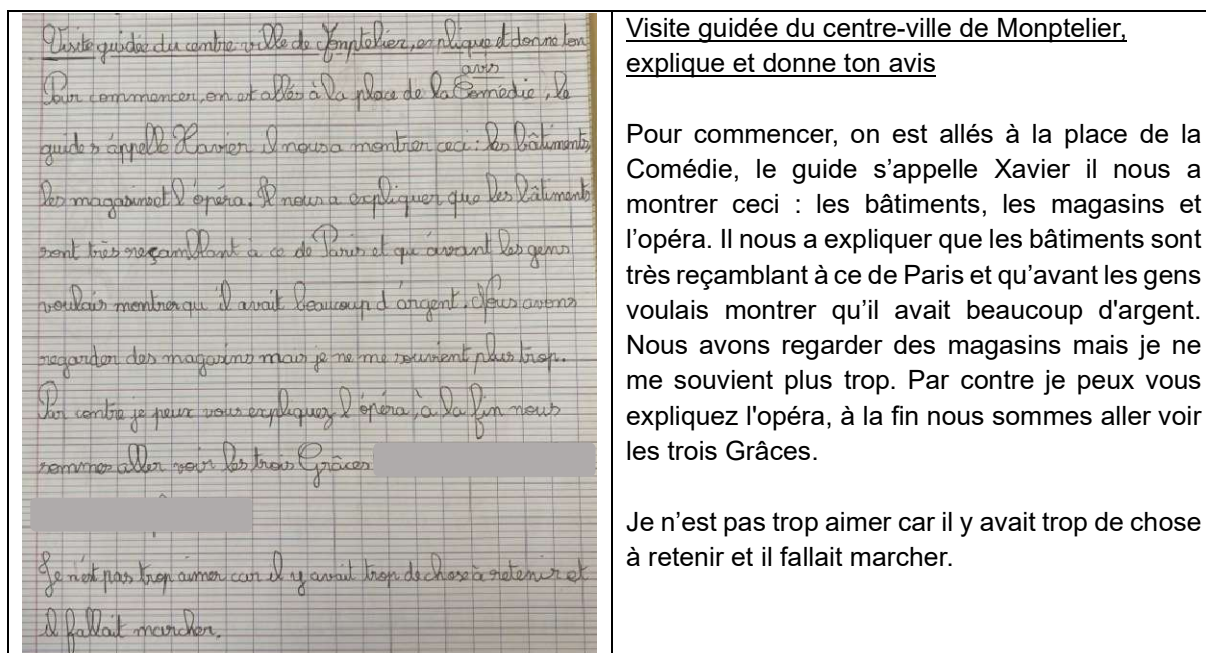 Visite guidée du centre ville de Monptelier, explique et donne ton
avis
Pour commencer, on est allés à la place de la Comédie, le
guide s'appelle Xavier Il nous a montrer ceci : les bâtiments,
les magasins et l'opéra. Il nous a expliquer que les bâtiments
sont très reçamblant à ce de Paris et qu'avant les gens
voulais montrer qu'il avait beaucoup d'argent. Nous avons
regarder des magasins mais je ne me souvient plus trop.
Par contre je peux vous expliquez l'opéra, à la fin nous
sommes aller voir les trois Grâces
Je n'est pas trop aimer car il y avait trop de chose à retenir et
il fallait marcher.
Visite guidée du centre-ville de Monptelier,
explique et donne ton avis
Pour commencer, on est allés à la place de la
Comédie, le guide s’appelle Xavier il nous a
montrer ceci : les bâtiments, les magasins et
l’opéra. Il nous a expliquer que les bâtiments sont
très reçamblant à ce de Paris et qu’avant les gens
voulais montrer qu’il avait beaucoup d'argent.
Nous avons regarder des magasins mais je ne
me souvient plus trop. Par contre je peux vous
expliquez l'opéra, à la fin nous sommes aller voir
les trois Grâces.
Je n’est pas trop aimer car il y avait trop de chose
à retenir et il fallait marcher.